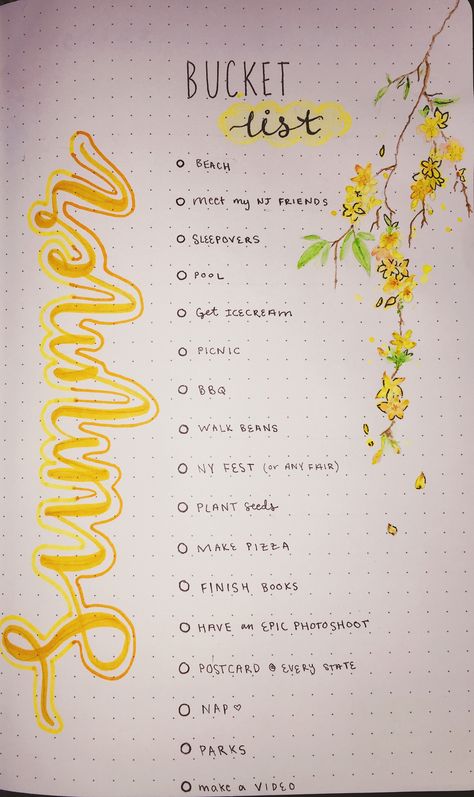 BUCKET
list
summer
BEACH
meet my NJ FRIENDS
SLEEPOVERS
POOL
Get ICECREAM
PICNIC
BBQ
WALK BEANS
NY FEST (or ANY FAIR)
PLANT Seeds
MAKE PIZZA
FINISH BOOKS
HAVE an EPIC PHOTOSHOOT
POSTCARD @ EVERY STATE
NAP ♡
PARKS
make a VIDEO